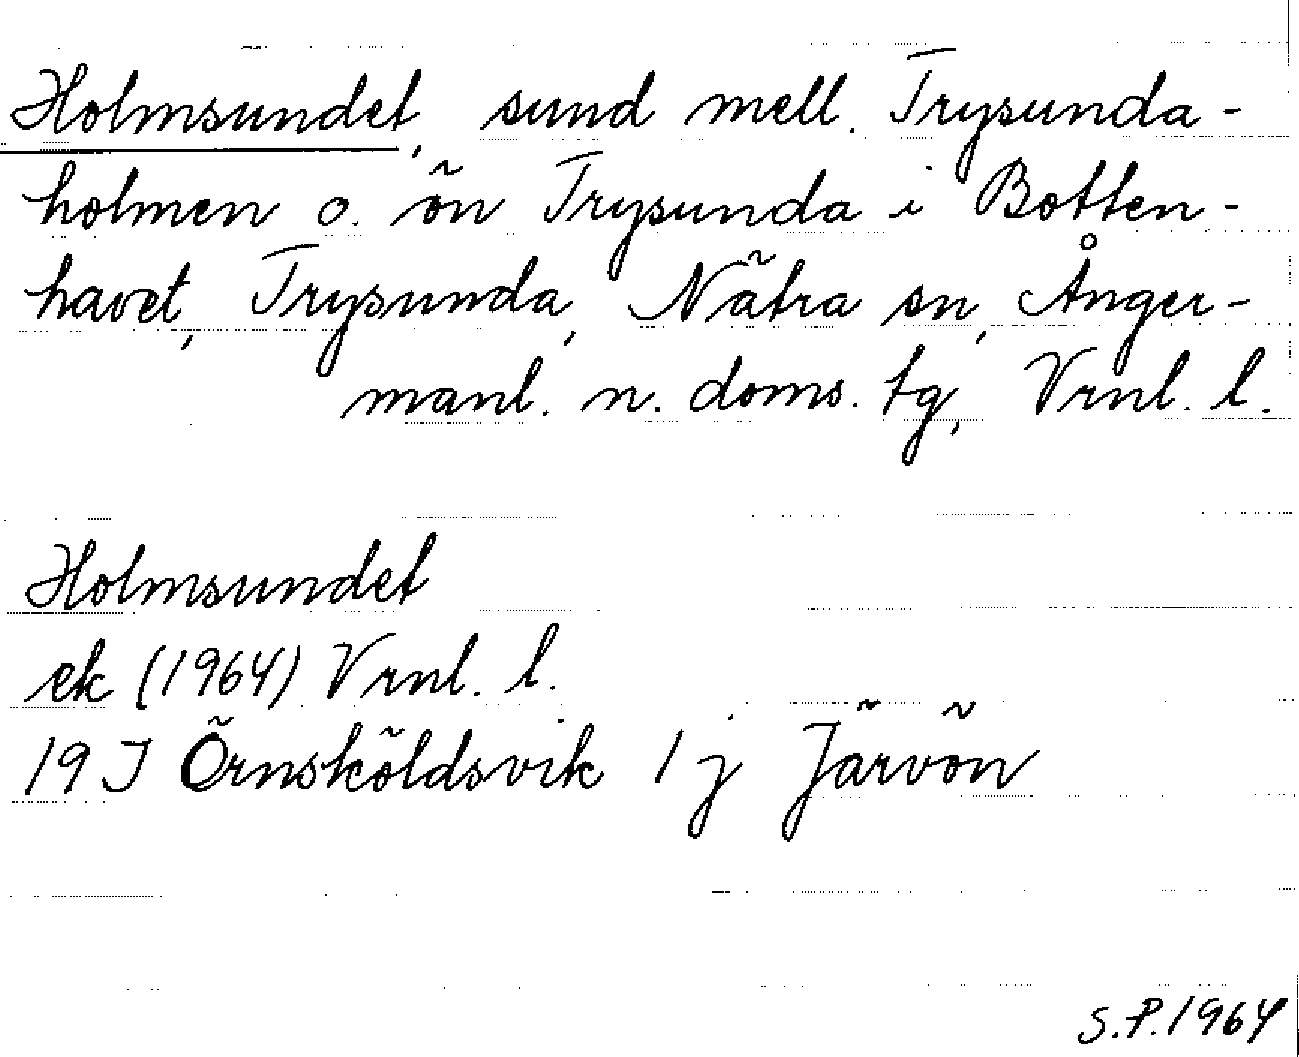 Holmsundet, sund mell. Trysunda-
holmen o. ön Trysunda i Botten-
havet, Trysunda, Nätra sn, Ånger-
manl. n. doms. tg, Vrnl. l.
Holmsundet
ek (1964) Vrnl. l.
19J Örnsköldsvik 1 j Järvön
S.P. 1964